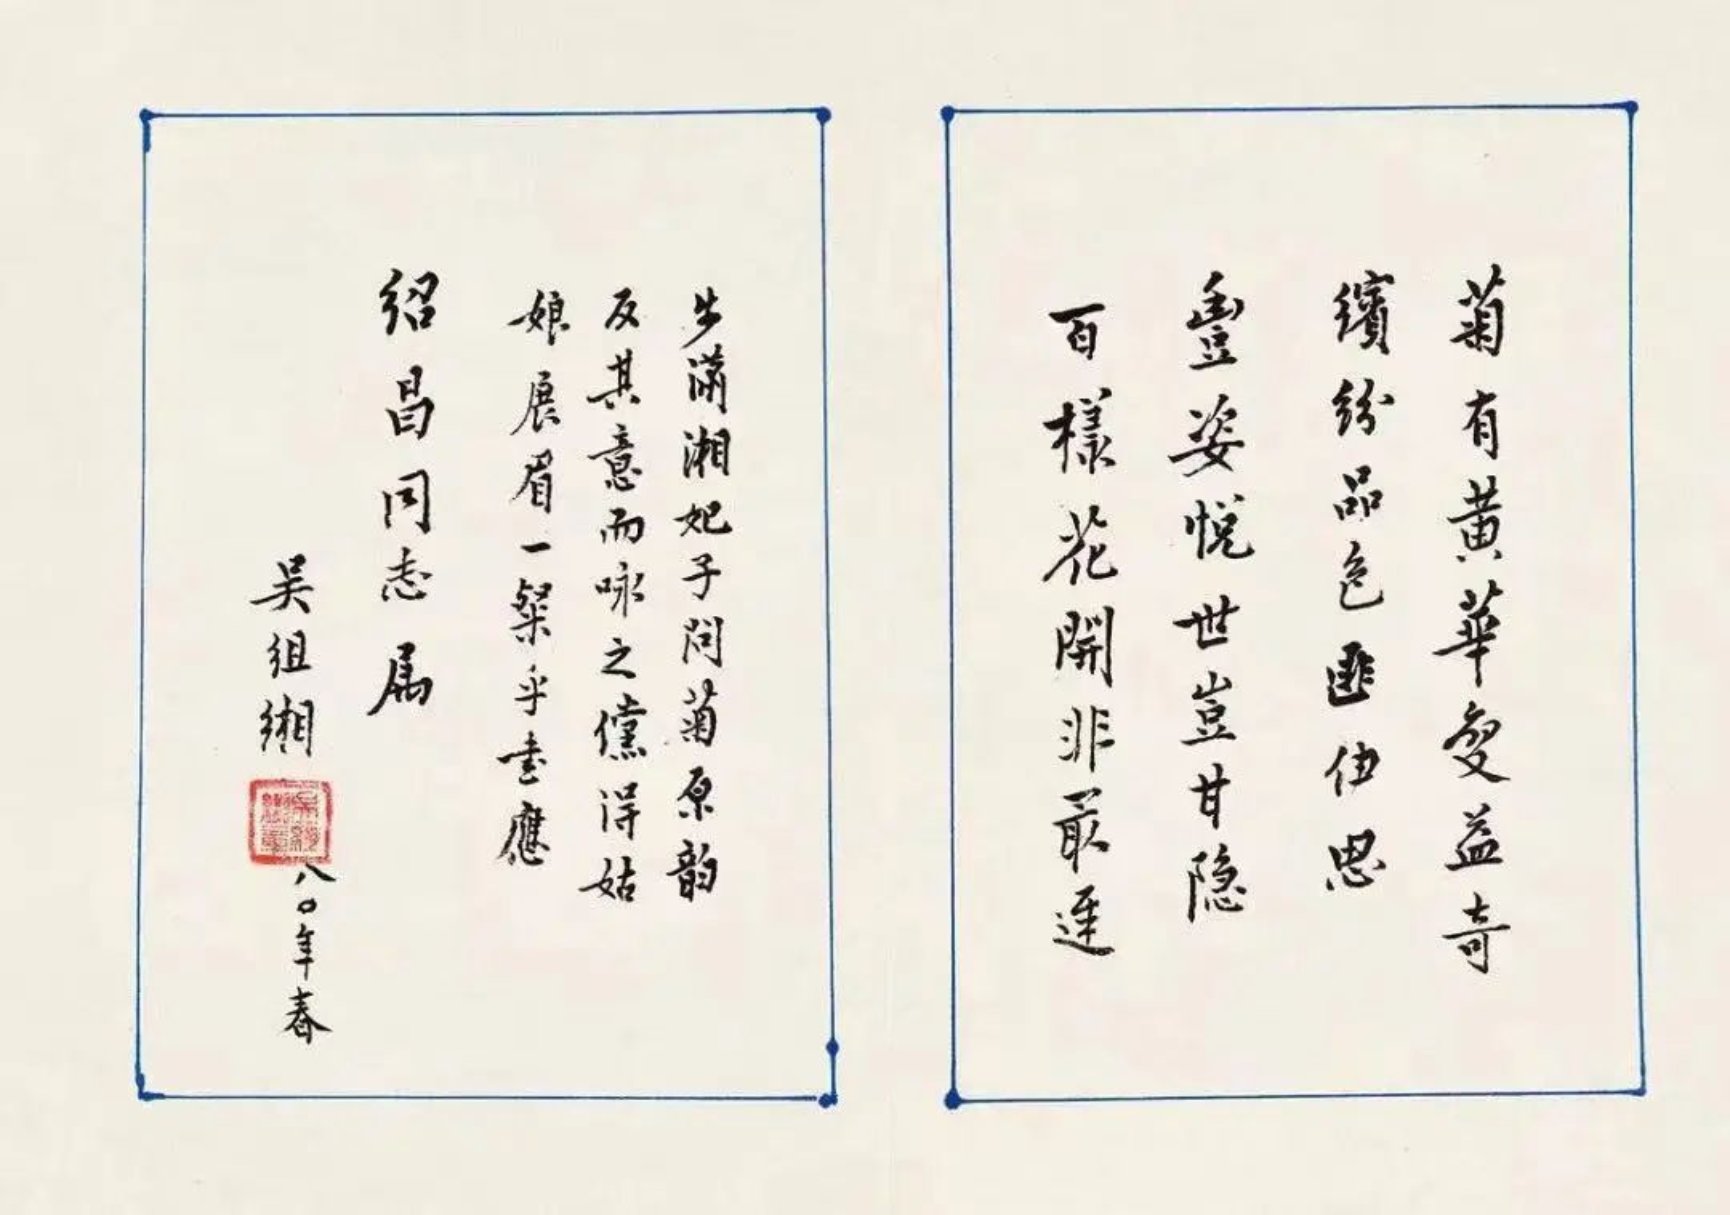 菊有黄華變益奇
繽紛品色匪伊思
豊姿悦世豈甘隐
百樣花開非最遲
步瀟湘妃子問菊原韵
反其意而咏之儻得姑
娘展眉一粲乎書應
绍昌同志属
吴组缃
八〇年春